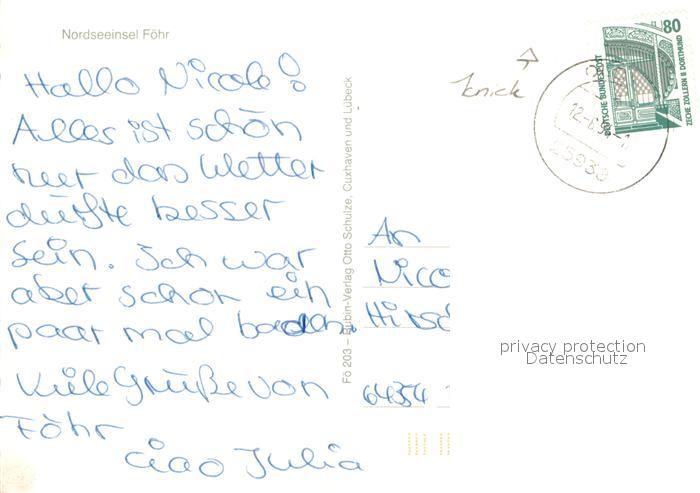 Nordseeinsel Föhr
Hallo Nicole!
Alles ist schön
nur das Wetter
dürfte besser
sein. Ich war
aber schon ein
paar mal baden.
Viele Grüße von
Föhr
ciao Julia
Fö 203 – Rubin-Verlag Otto Schulze, Cuxhaven und Lübeck
knick
80
DEUTSCHE BUNDESPOST
ZECHE ZOLLERN II DORTMUND
25938
An
Nico
Hirsc
64354
privacy protection
Datenschutz